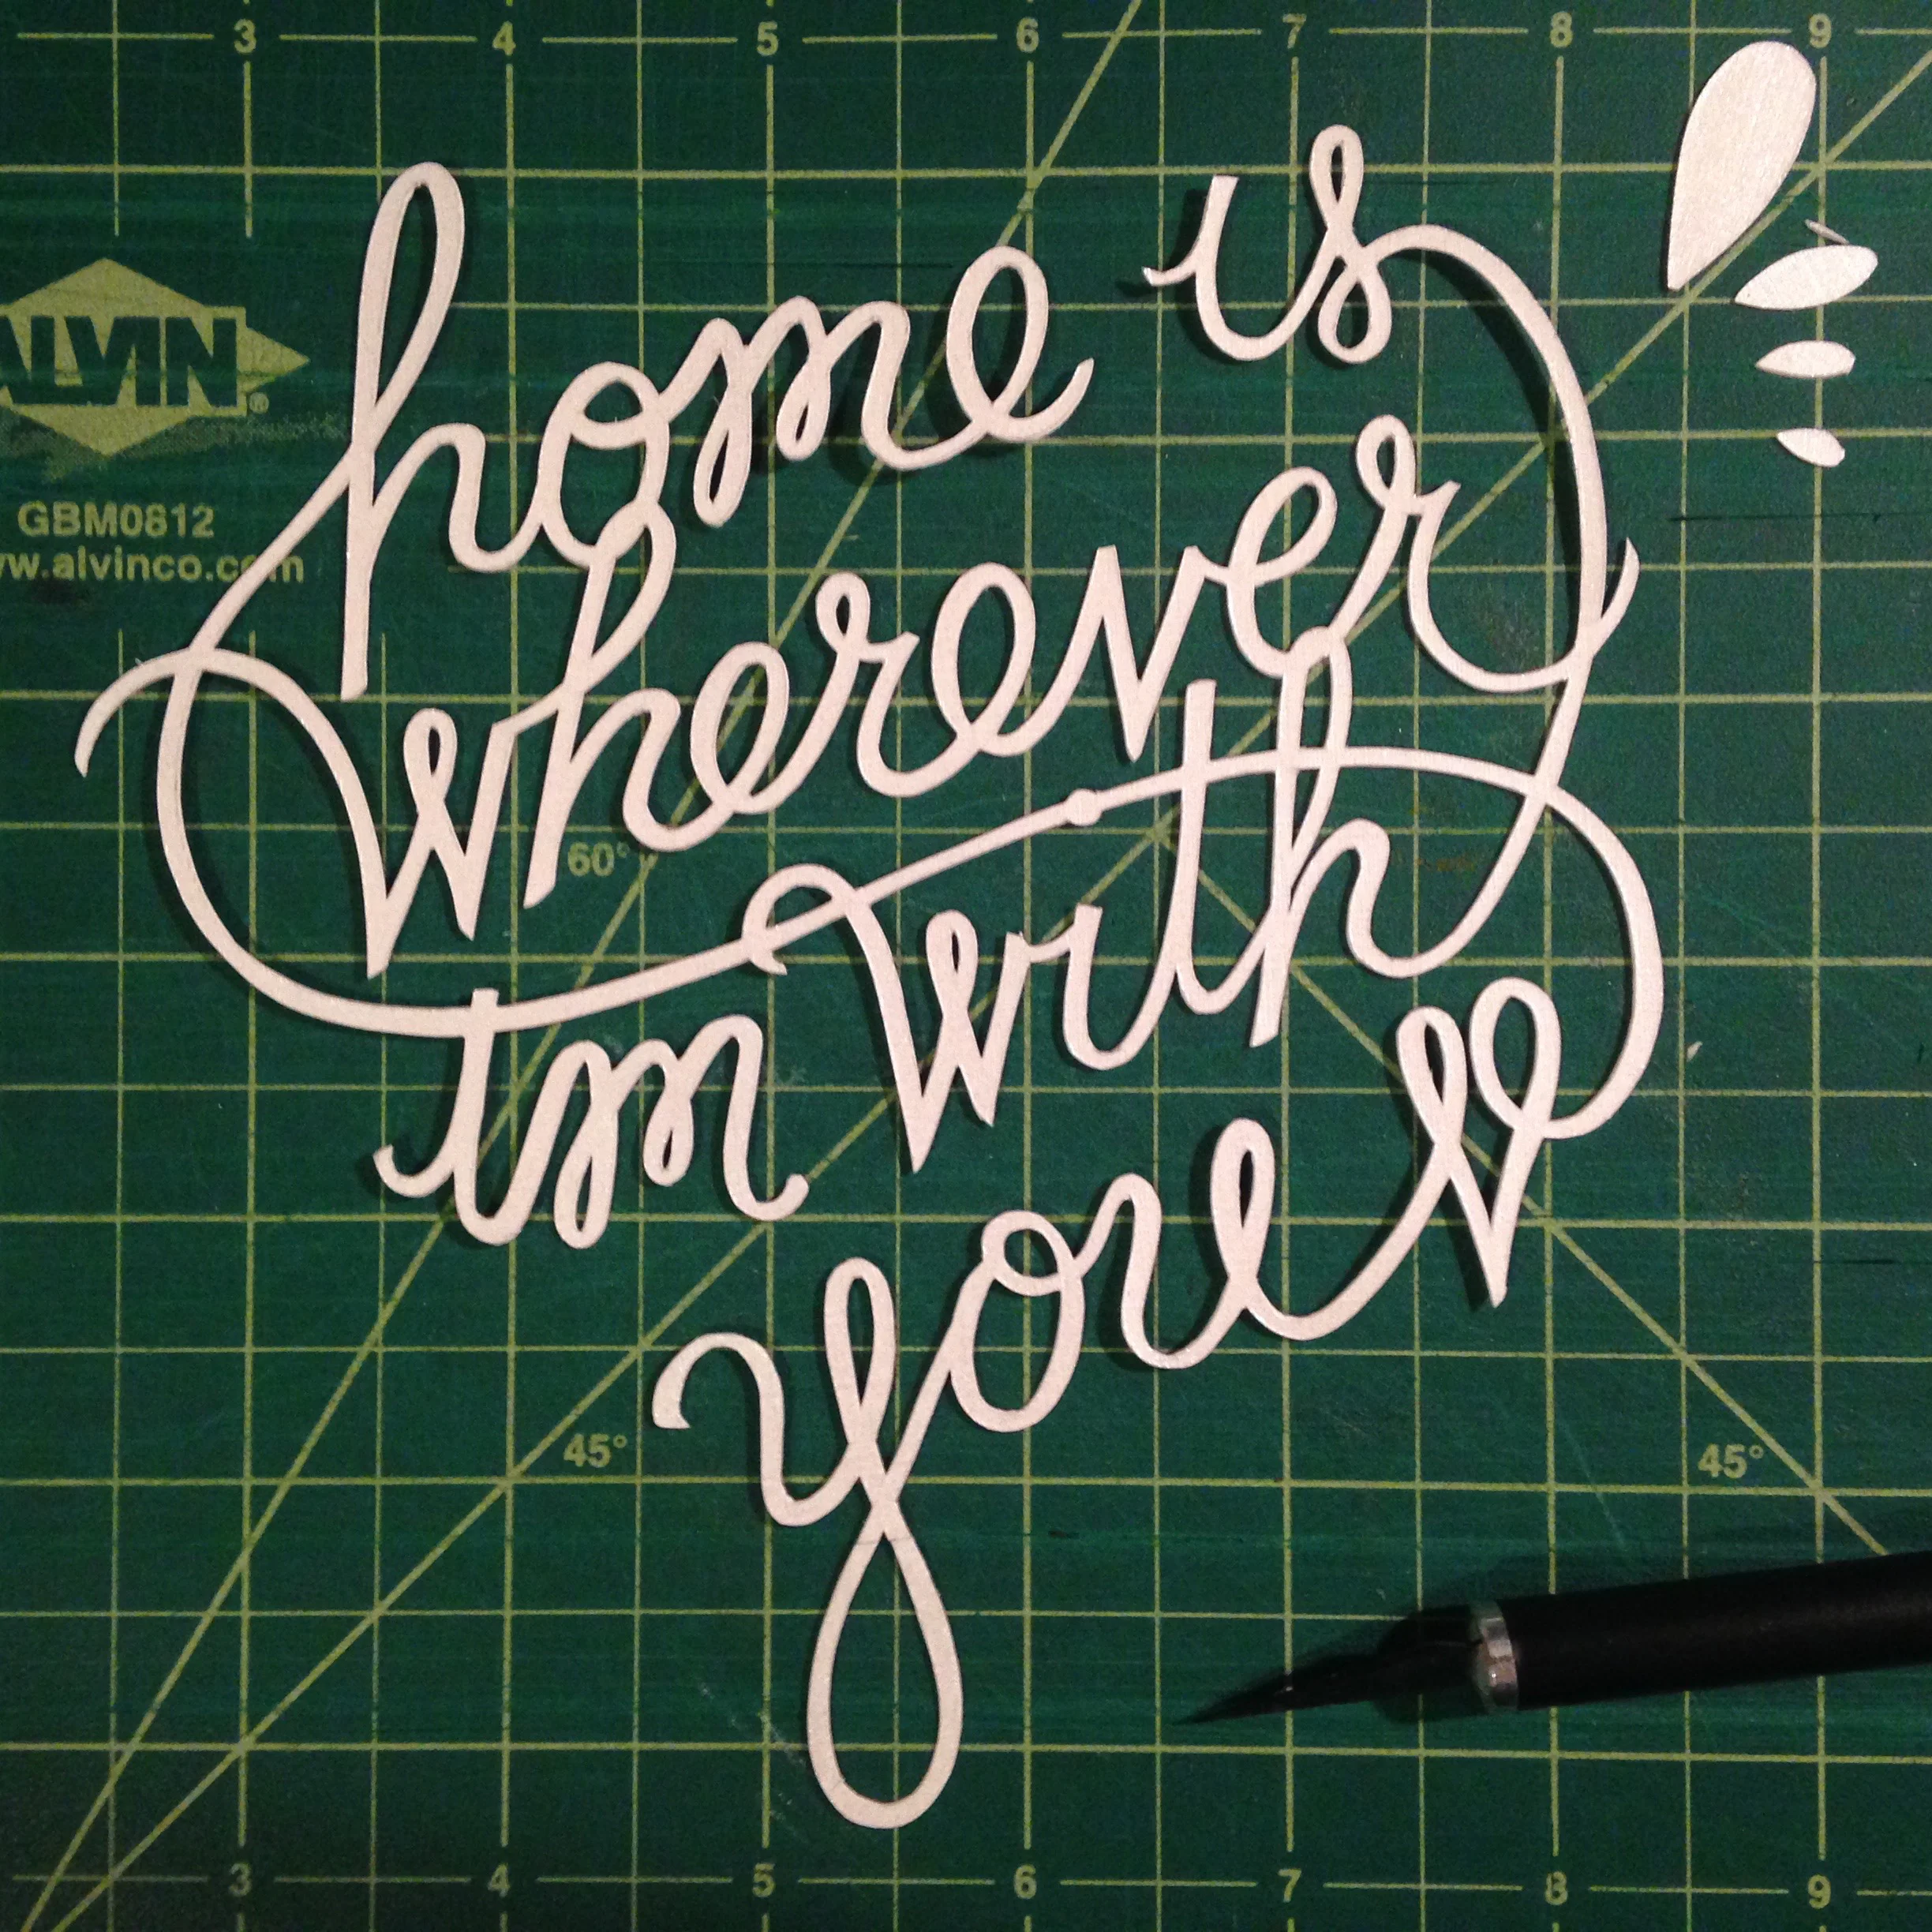 3 4 5 6 7 8 9
home is
wherever
im with
you
ALVIN®
GBM0812
www.alvinco.com
60°
45° 45°
3 4 5 6 7 8 9